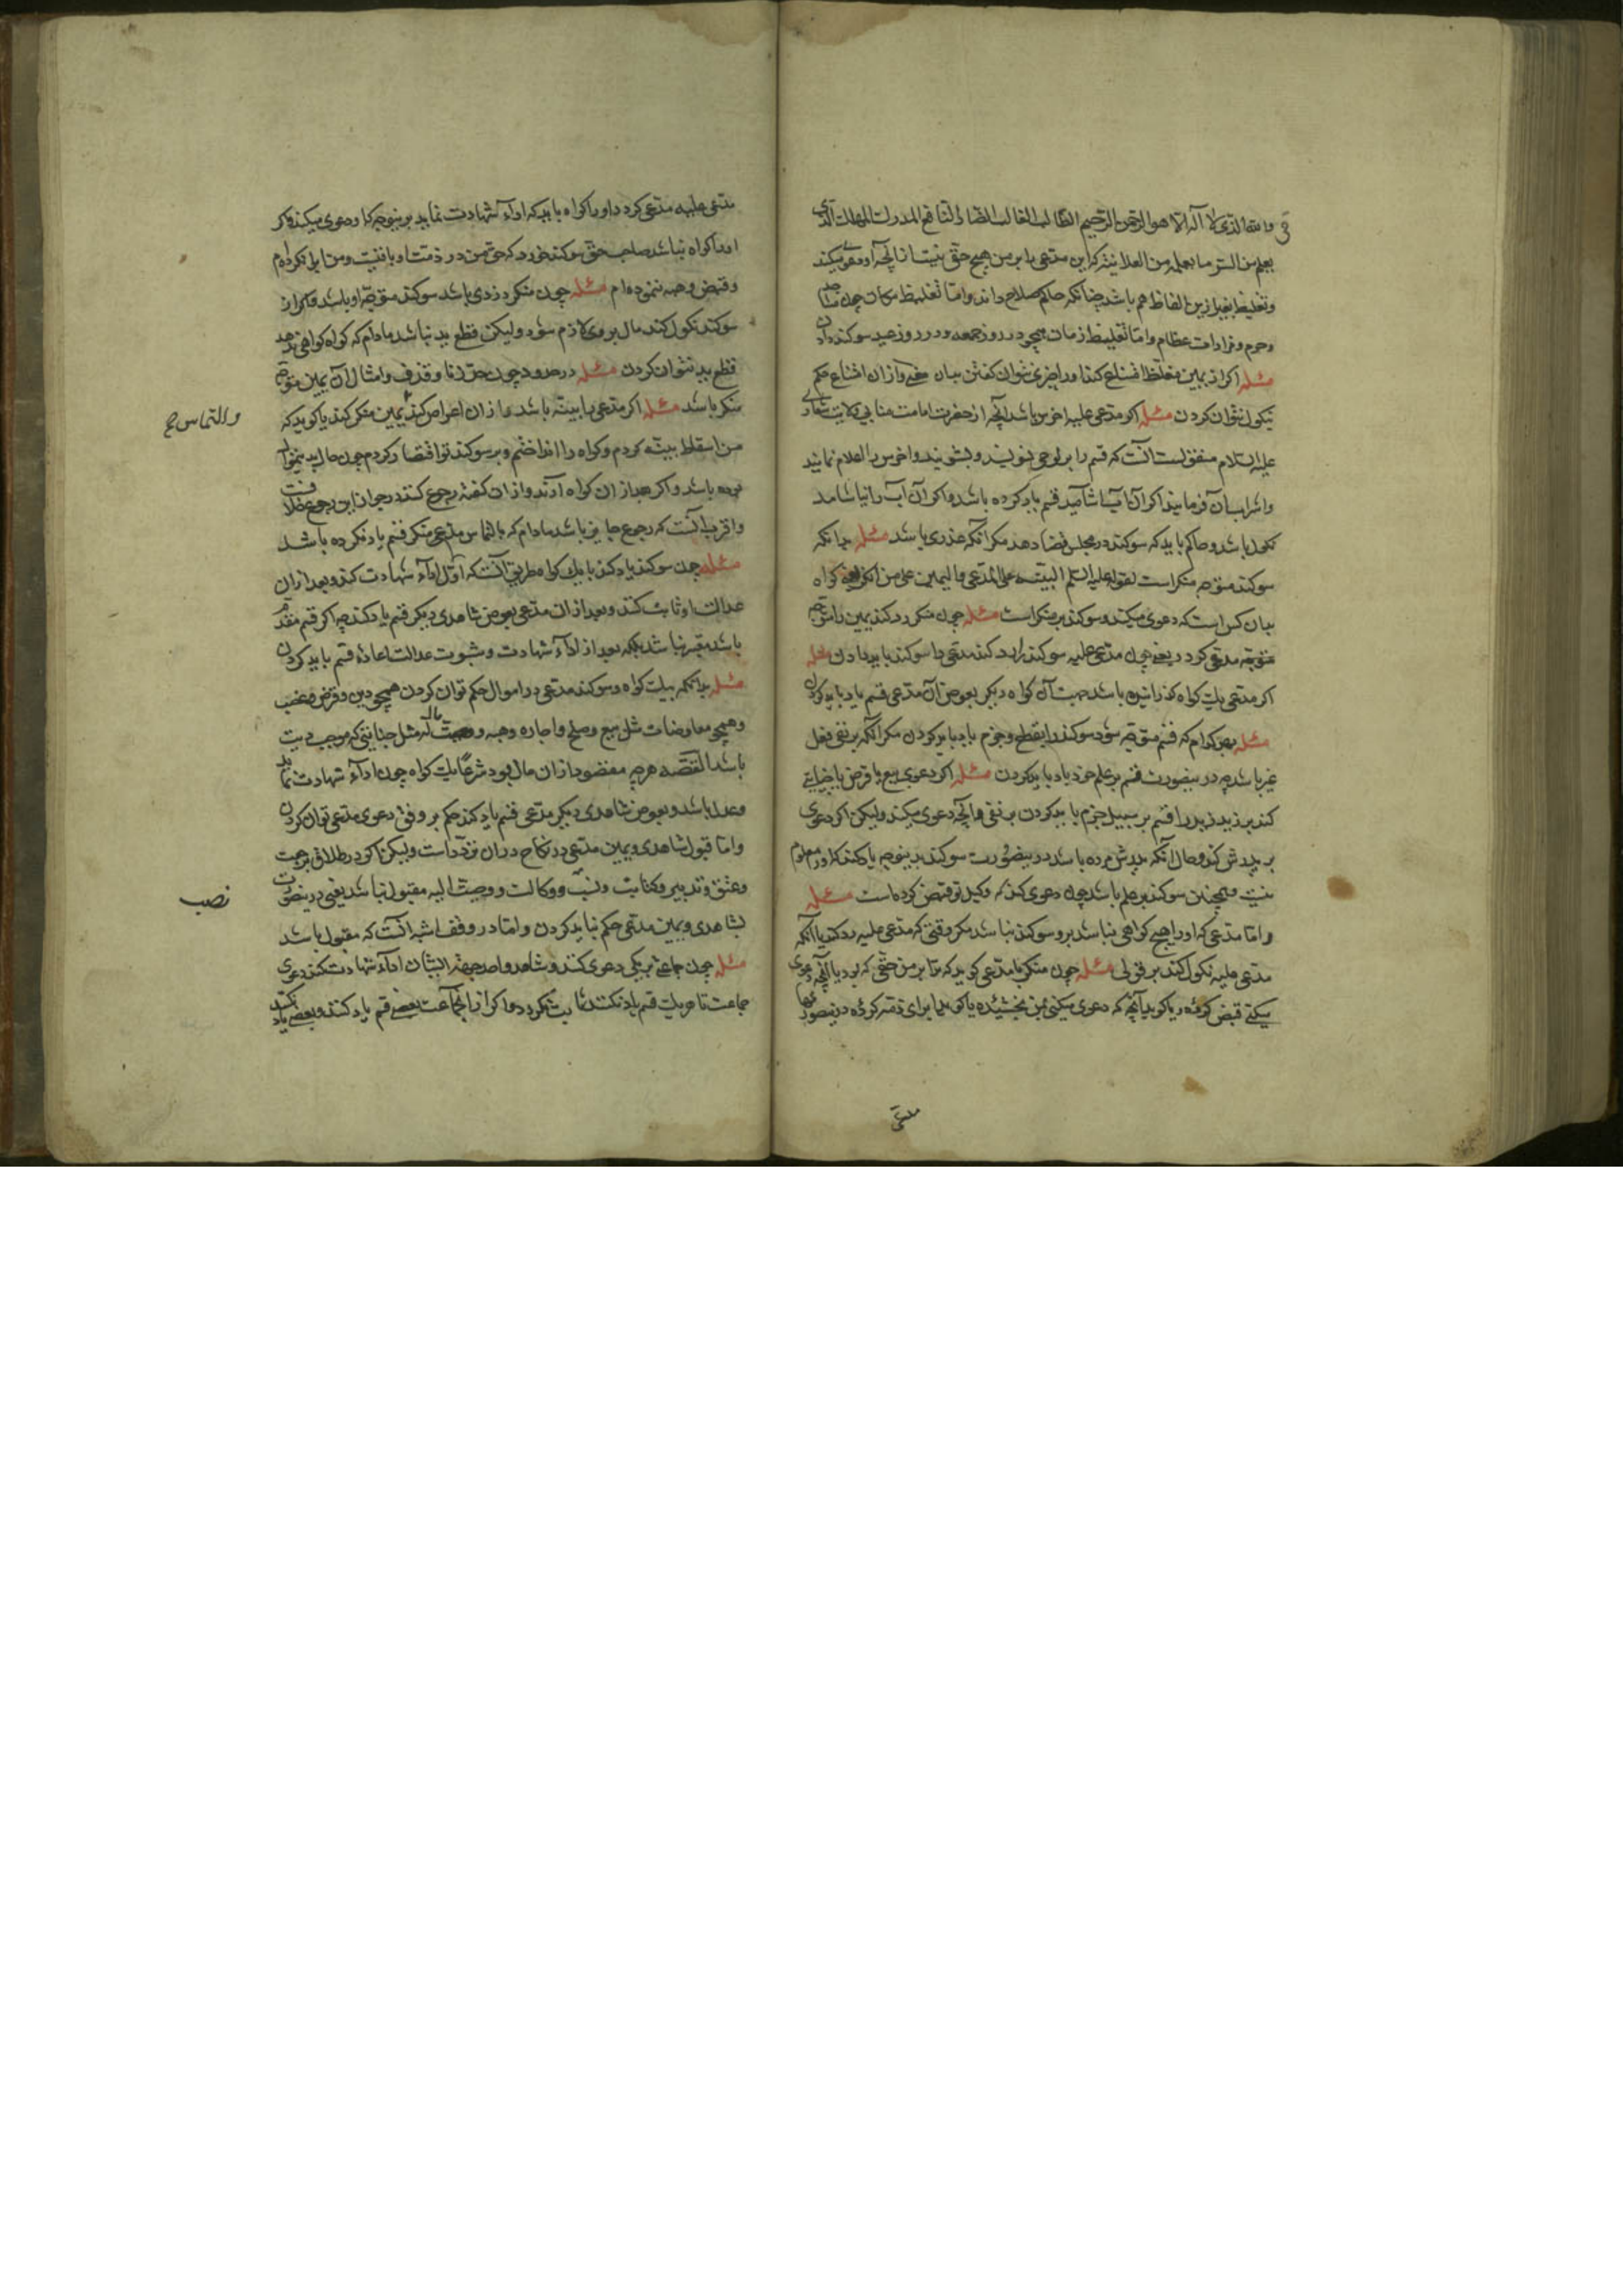 والله الذی لا اله الا هو الرحمن الرحیم الطالب الغالب الضار النافع المدرک المهلک الذی
یعلم من السر ما یعلمه من العلانیة که این مدعی را بر من هیچ حقی نیست از آنچه او دعوی میکند
و تغلیظ بغیر ازین الفاظ هم باشد چنانکه حاکم صلاح داند و اما تغلیظ مکان چون مساجد
و حرم و مزارات عظام و اما تغلیظ زمان همچو در روز جمعه و در روز عید سوکند دادن
مسئله اکر از یمین مغلظ امتناع کند او را جبری نتوان کفتن بیان یعنی از ان امتناع حکم
نکول نتوان کردن مسئله اکر مدعی علیه اخرس باشد آنچه از حضرت امامت منابی ولایت شعاری
علیه السلام منقولست آنست که قسم را بر لوحی بنویسند و بشویند و اخرس را اعلام نمایند
و اشراب آن فرمایند اکر آن آب بیاشامید قسم یاد کرده باشد و اکر آن آب را نیاشامد
نکول باشد و حاکم باید که سوکند در مجلس قضا دهد مکر آنکه عذری باشد مسئله بدانکه
سوکند متوجه منکر است لقوله علیه السلم البینة علی المدعی و الیمین علی من انکر یعنی کواه
بدان کس است که دعوی میکند و سوکند بر منکر است مسئله چون منکر رد کند یمین را متوجه
متوجه مدعی کردد یعنی چون مدعی علیه سوکند را رد کند مدعی را سوکند باید دادن مسئله
اکر مدعی یک کواه کذرانیده باشد جهت آن کواه دیکر بعوض آن مدعی قسم یاد باید کردن
مسئله بهر کدام که قسم متوجه شود سوکند را بقطع و جزم یاد باید کردن مکر آنکه بر نفی فعل
غیر باشد چه در ینصورت قسم بر علم خود یاد باید کردن مسئله اکر دعوی بیع یا قرض یا جنایتی
کند بر زید زید را قسم بر سبیل جزم باید کردن بر نفی آنچه دعوی میکند ولیکن اکر دعوی
بر پدرش کند و حال آنکه پدرش مرده باشد در ینصورت سوکند بدینوجه یاد کند که او را معلوم
نیست و همچنین سوکند بر علم باشد چون دعوی کند که وکیل تو قبض کرده است مسئله
و اما مدعی که او را هیچ کواهی نباشد برو سوکند نباشد مکر وقتی که مدعی علیه رد کند یا آنکه
مدعی علیه نکول کند بر قولی مسئله چون منکر با مدعی کوید که ترا بر من حقی که بود یا آنچه دعوی
میکنی قبض کردۀ و یا کوید آنچه که دعوی میکنی بمن بخشیدۀ یا کوید ابرای ذمه کردۀ در ینصورتها
مدعی علیه مدعی کردد او را کواه باید که اداء شهادت نماید بر ینوجه که او دعوی میکند و اکر
او را کواه نباشد صاحب حق سوکند خورد که حق من در ذمت او باقیست و من ابرا نکرده‌ام
و قبض و هبه ننموده‌ام مسئله چون منکر دزدی باشد سوکند متوجه او باشد و اکر از
سوکند نکول کند مال بر وی لازم شود ولیکن قطع ید نباشد مادام که کواه کواهی ندهد
قطع ید نتوان کردن مسئله در حدود چون حد زنا و قذف و امثال آن یمین متوجه
منکر باشد مسئله اکر مدعی را بینه باشد و از ان اعراض کند و التماس یمین منکر کند یا کوید که
من اسقاط بینه کردم و کواه را انداختم و بر سوکند تو اقتصار کردم چون حال بدینمنوال
بوده باشد و اکر بعد از ان کواه آرند و از ان کفته رجوع کنند در جواز این رجوع خلافست
و اقرب آنست که رجوع جایز باشد مادام که بالتماس مدعی منکر قسم یاد نکرده باشد
مسئله چون سوکند یاد کند با یک کواه طریق آنست که اول اداء شهادت کند و بعد از ان
عدالت او ثابت کند و بعد از ان مدعی بعوض شاهدی دیکر قسم یاد کند چه اکر قسم مقدم
باشد معتبر نباشد بلکه بعد از اداء شهادت و ثبوت عدالت اعادۀ قسم باید کردن
مسئله بدانکه بیک کواه و سوکند مدعی در اموال حکم توان کردن همچو دین و قرض و غصب
و همچو معاوضات مثل بیع و صلح و اجاره و هبه و وصیت له مثل جنایتی که موجب دیت
باشد القصه هر چه مقصود از ان مال بود شرعا یک کواه چون اداء شهادت نماید
و عدل باشد و بعوض شاهدی دیکر مدعی قسم یاد کند حکم بر وفق دعوی مدعی توان کردن
و اما قبول شاهدی و یمین مدعی در نکاح در ان تردد است ولیکن اکر در طلاق و رجعت
و عتق و تدبیر و کتابت و نسب و وکالت و وصیت الیه مقبول نباشد یعنی در ینصورت
بشاهدی و یمین مدعی حکم نباید کردن و اما در وقف اشبه آنست که مقبول باشد
مسئله چون جماعتی بر یکی دعوی کنند و شاهد واحد جهة ایشان اداء شهادت کند دعوی
جماعت تا هر یک قسم یاد نکنند ثابت نکردد و اکر از آنجماعت بعضی قسم یاد کنند و بعضی یاد نکنند
و التماس صح
نصب